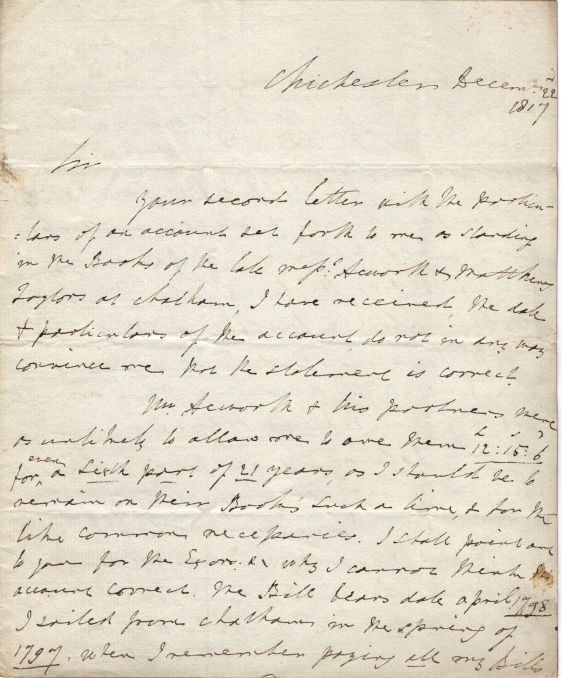 Chichester Decem.r 22nd
1817
Sir
Your second letter with the particu-
-lars of an account set forth to me as standing
in the Books of the late mess.rs Acworth & Matthew
Taylors at Chatham, I have received, the date
& particulars of the account do not in any way
convince me that the statement is correct
Mr Acworth & his partners were
as unlikely to allow me to owe them £ s d 12:15:6
for even a sixth part of 21 years, as I should be to
remain on their Books such a time, & for the
like common necessaries. I shall point out
to you for the Exors. & why I cannot think the
account correct. The Bill bears date april 1798
I sailed from Chatham in the spring of
1797, when I remember paying all my Bills